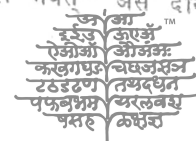 अ आ ™
इईउ ऊएऍ
ऐओऑ औअंअः
कखगघङ चछजझञ
टठडढण तथदधन
पफबभम यरलवश
षसह ळक्षज्ञ